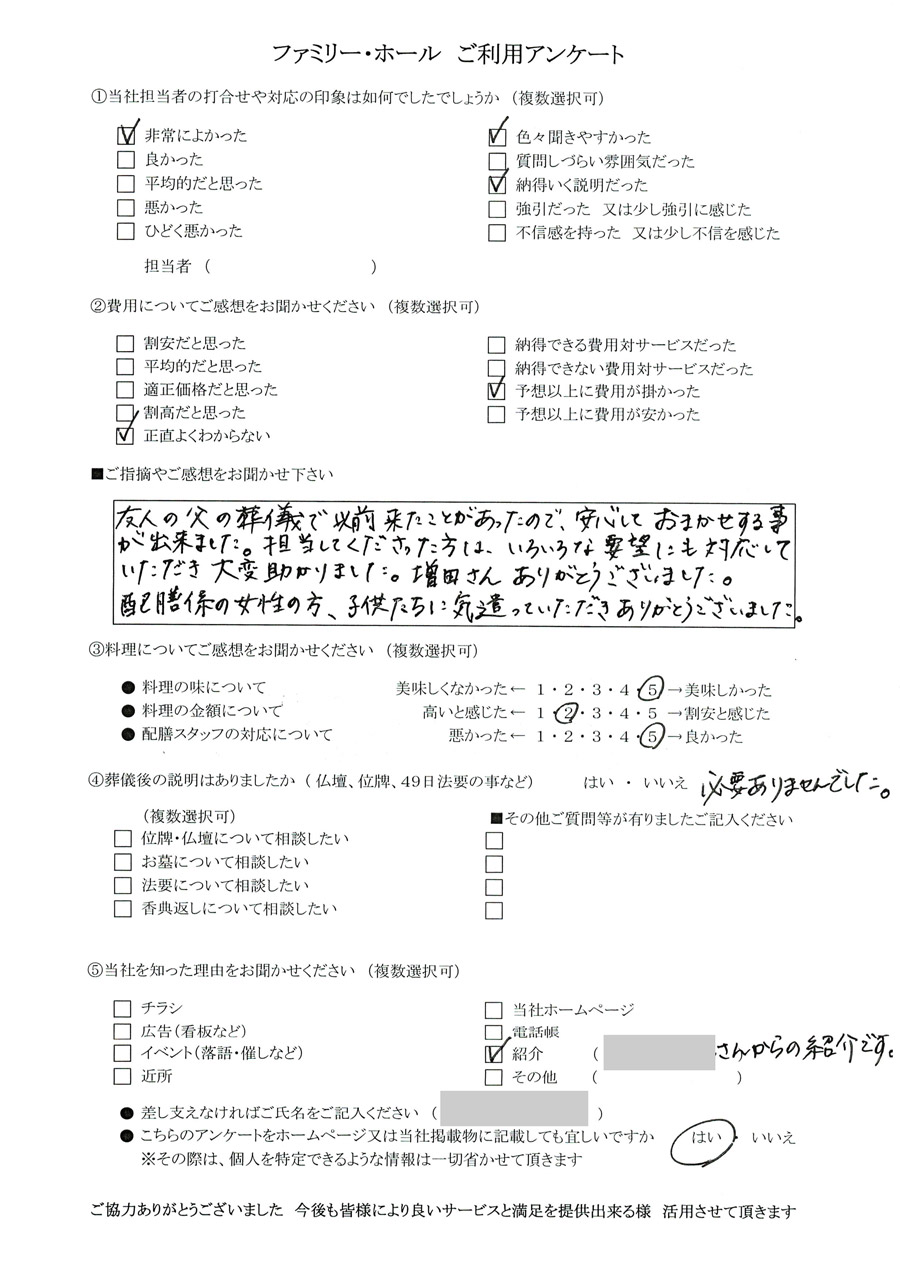 ファミリー・ホール ご利用アンケート
①当社担当者の打合せや対応の印象は如何でしたでしょうか （複数選択可）
☑ 非常によかった ☑ 色々聞きやすかった
□ 良かった □ 質問しづらい雰囲気だった
□ 平均的だと思った ☑ 納得いく説明だった
□ 悪かった □ 強引だった 又は少し強引に感じた
□ ひどく悪かった □ 不信感を持った 又は少し不信を感じた
担当者 （ ）
②費用についてご感想をお聞かせください （複数選択可）
□ 割安だと思った □ 納得できる費用対サービスだった
□ 平均的だと思った □ 納得できない費用対サービスだった
□ 適正価格だと思った ☑ 予想以上に費用が掛かった
□ 割高だと思った □ 予想以上に費用が安かった
☑ 正直よくわからない
■ご指摘やご感想をお聞かせ下さい
友人の父の葬儀で以前来たことがあったので、安心しておまかせする事
が出来ました。担当してくださった方は、いろいろな要望にも対応して
いただき大変助かりました。増田さんありがとうございました。
配膳係の女性の方、子供たちに気遣っていただきありがとうございました。
③料理についてご感想をお聞かせください （複数選択可）
● 料理の味について 美味しくなかった← 1・2・3・4・5 →美味しかった
● 料理の金額について 高いと感じた← 1・2・3・4・5 →割安と感じた
● 配膳スタッフの対応について 悪かった← 1・2・3・4・5 →良かった
④葬儀後の説明はありましたか （ 仏壇、位牌、49日法要の事など） はい ・ いいえ 必要ありませんでした。
（複数選択可） ■その他ご質問等が有りましたご記入ください
□ 位牌・仏壇について相談したい □
□ お墓について相談したい □
□ 法要について相談したい □
□ 香典返しについて相談したい □
⑤当社を知った理由をお聞かせください （複数選択可）
□ チラシ □ 当社ホームページ
□ 広告（看板など） □ 電話帳
□ イベント（落語・催しなど） ☑ 紹介 （ さんからの紹介です。
□ 近所 □ その他 （ ）
● 差し支えなければご氏名をご記入ください （ ）
● こちらのアンケートをホームページ又は当社掲載物に記載しても宜しいですか はい ・ いいえ
※その際は、個人を特定できるような情報は一切省かせて頂きます
ご協力ありがとうございました 今後も皆様により良いサービスと満足を提供出来る様 活用させて頂きます